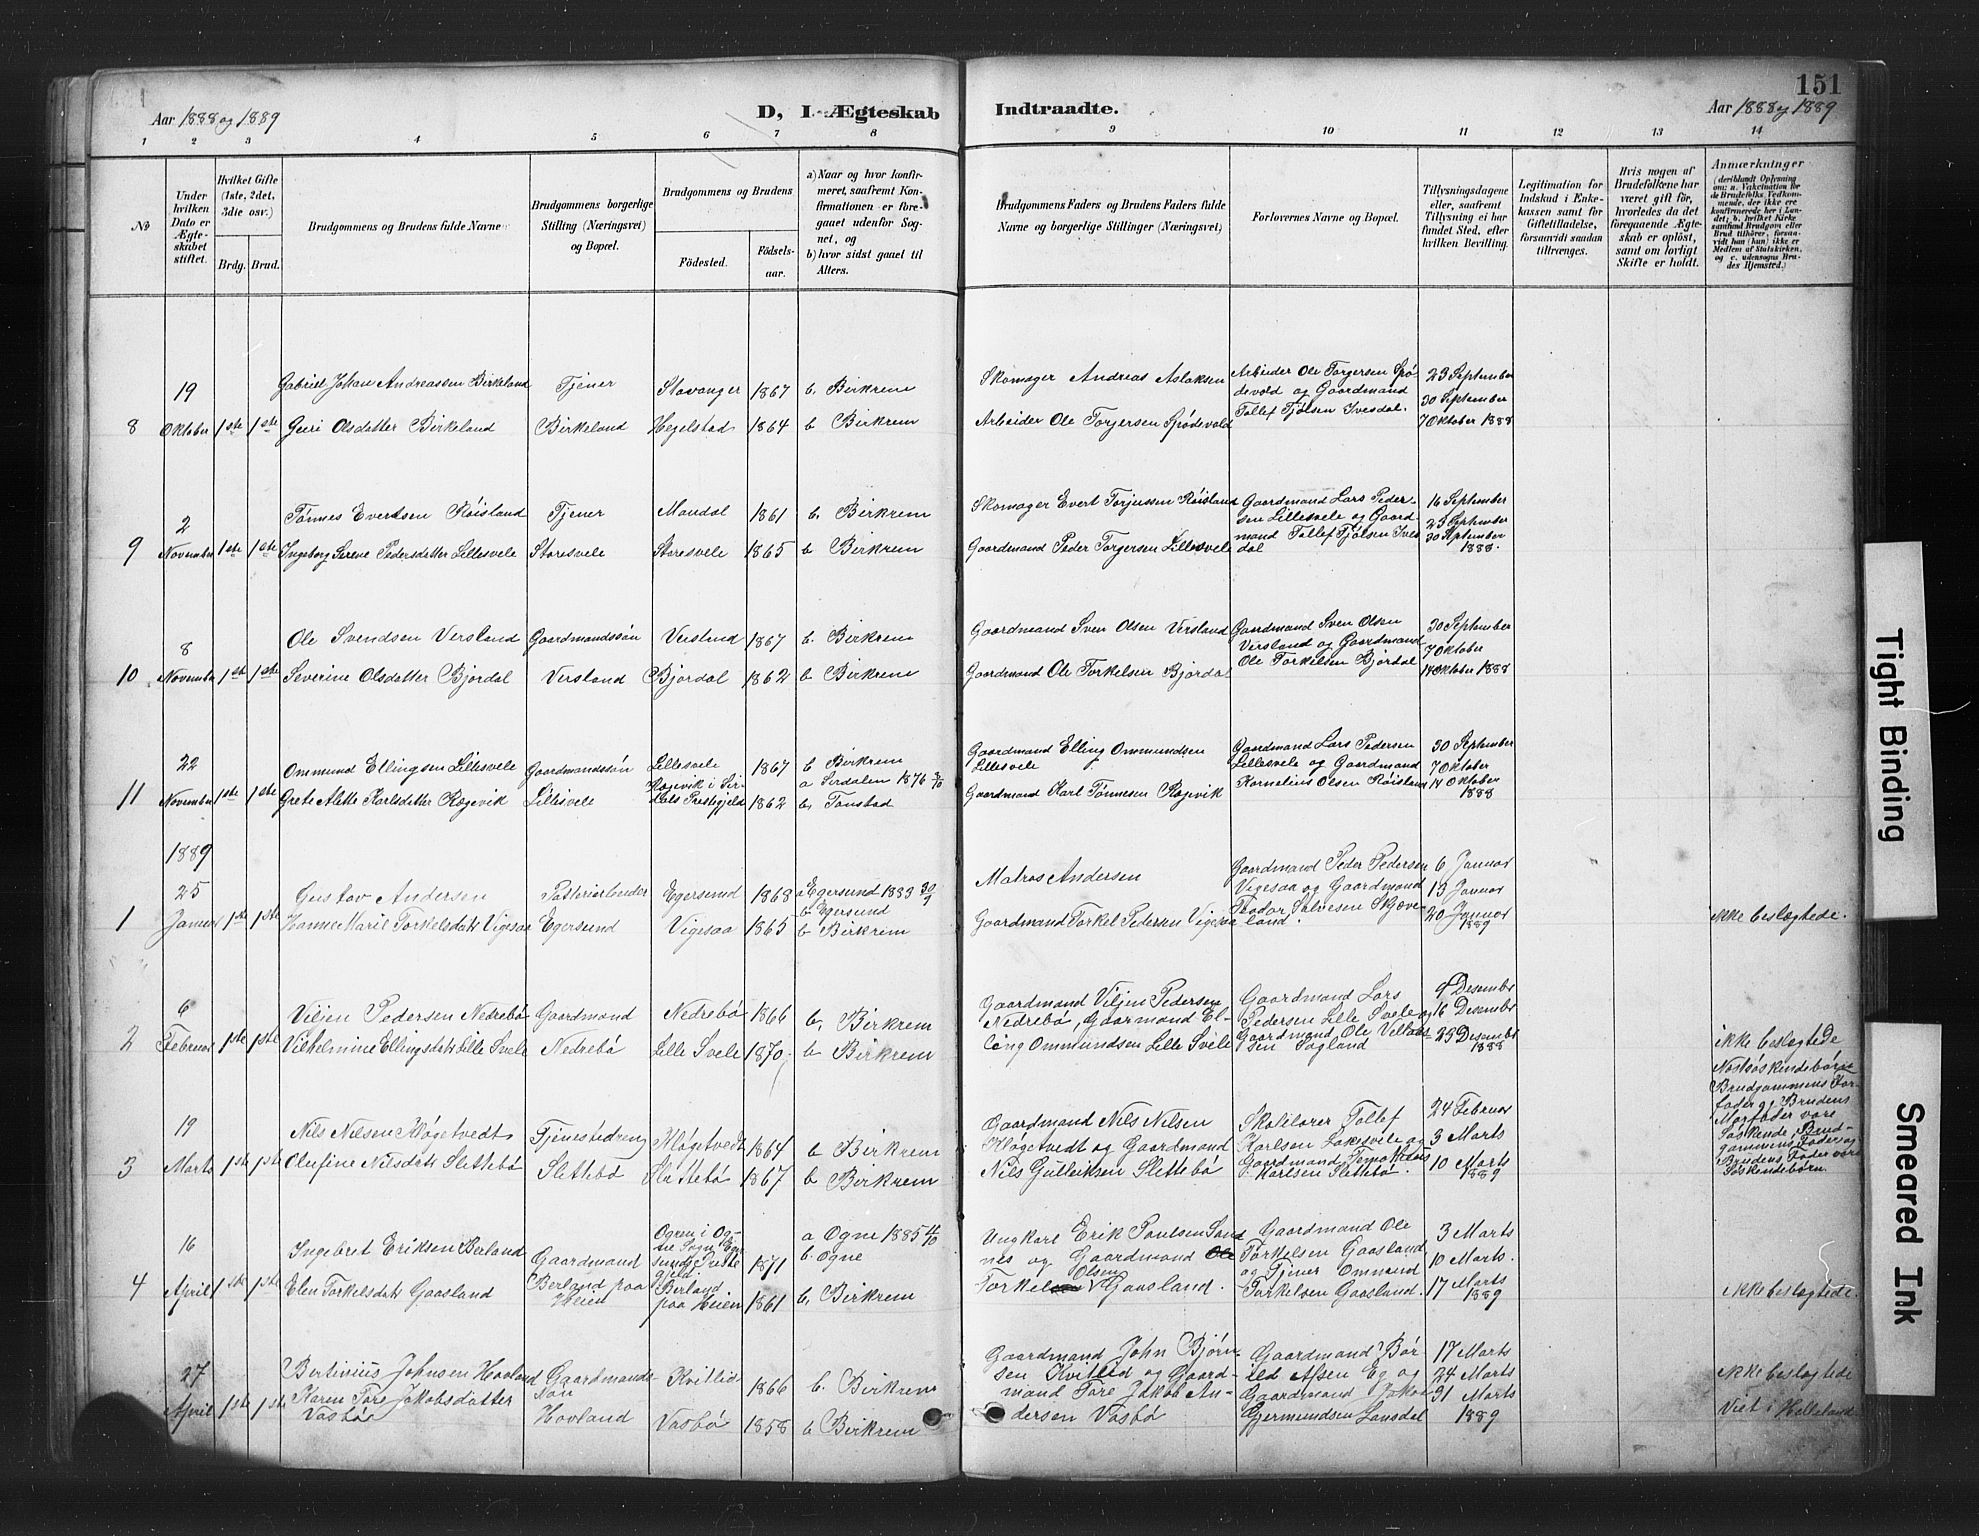 151
Aar 1888 og 1889
D, I. Ægteskab
Indtraadte.
Aar 1888 og 1889
1 2 3 4 5 6 7 8 9 10 11 12 13 14
No
Under hvilken Dato er Ægteskabet stiftet.
Hvilket Gifte (1ste, 2det, 3die osv.)
Brdg. Brud.
Brudgommens og Brudens fulde Navne
Brudgommens borgerlige Stilling (Næringsvei) og Bopæl.
Brudgommens og Brudens
Fødested.
Fødselsaar.
a) Naar og hvor konfirmeret, saafremt Konfirmationen er foregaaet udenfor Sognet, og
b) hvor sidst gaaet til Alters.
Brudgommens Faders og Brudens Faders fulde Navne og borgerlige Stillinger (Næringsvei)
Forlovernes Navne og Bopæl.
Tillysningsdagene eller, saafremt Tillysning ei har fundet Sted, efter hvilken Bevilling.
Legitimation for Indskud i Enkekassen samt for Giftetilladelse, forsaavidt saadan tiltrænges.
Hvis nogen af Brudefolkene har været gift før, hvorledes da det foregaaende Ægteskab er opløst, samt om lovligt Skifte er holdt.
Anmærkninger (deriblandt Oplysning om: a. Vakcination for de Brudefolks Vedkommende, der ikke ere konfirmerede her i Landet; b. hvilket Kirkesamfund Brudgom eller Brud tilhører, forsaavidt han (hun) ikke er Medlem af Statskirken, og c. udensogns Brudes Hjemsted.)
8 19 Oktober 1ste 1ste
Gabriel Johan Andreassen Birkeland Tjener Stavanger 1867 b. Birkrem
Guri Olsdatter Birkeland Birkeland Hegelstad 1864 b Birkrem
Skomager Andreas Aslaksen
Arbeider Ole Torgersen Spødevold
Arbeider Ole Torgersen Spødevold og Gaardmand Tollef Tjølsen Ivesdal.
23 September
30 September
7 Oktober 1888
9 2 November 1ste 1ste
Tønnes Evertsen Røisland Tjener Mandal 1861 b. Birkrem
Ingeborg Serene Pedersdatter Lillesvele Storesvele Storesvele 1865 b Birkrem
Skomager Evert Torjussen Røisland
Gaardmand Peder Torgersen Lillesvele
Gaardmand Lars Pedersen Lillesvele og Gaardmand Tollef Tjølsen Ivesdal
16 September
23 September
30 September
1888.
10 8 November 1ste 1ste
Ole Svendsen Versland Gaardmandssøn Versland 1867 b. Birkrem
Severine Olsdatter Bjordal Versland Bjordal 1862 b Birkrem
Gaardmand Sven Olsen Versland
Gaardmand Ole Torkelsen Bjordal
Gaardmand Sven Olsen Versland og Gaardmand Ole Torkelsen Bjordal
30 September
7 Oktober
14 Oktober 1888
11 22 November 1ste 1ste
Ommund Ellingsen Lillesvele Gaardmandssøn Lillesvele 1867 b Birkrem
Grete Alette Karlsdatter Rogevik Lillesvele Rogevik i Sirdals Prestegjeld 1862 a Sirdalen 1876 b. Tonstad
Gaardmand Elling Ommundsen Lillesvele
Gaardmand Karl Tønnesen Rogevik
Gaardmand Lars Pedersen Lillesvele og Gaardmand Kornelius Olsen Røisland
30 September
7 Oktober
14 Oktober
1888
1889
1 25 Januar 1ste 1ste
Gustav Andersen Egersund 1868 a Egersund 1883 30/9 b Egersund
Hanne Marie Torkelsdatr Vigesaa Egersund Vigesaa 1865 b Birkrem
Matros Andersen
Gaardmand Torkel Pedersen Vigesaa
Gaardmand Peder Pedersen Vigesaa og Gaardmand Teodor Salvesen Skjæveland.
6 Januar
13 Januar
20 Januar
1889
ikke beslægtede.
2 6 Februar 1ste 1ste
Viljen Pedersen Nedrebø Gaardmand Nedrebø 1866 b. Birkrem
Vilhelmine Ellingsdatr Lille Svele Nedrebø Lille Svele 1870. b Birkrem
Gaardmand Viljen Pedersen Nedrebø, Gaarmand Elling Ommundsen Lille Svele
Gaardmand Lars Pedersen Lille Svele og Gaardmand Ole Villadssen Sagland
9 Desember
16 Desember
23 Desember
1888
ikke beslægtede
3 19 Marts 1ste 1ste
Nils Nilsen Høgetvedt Tjenestedreng Høgetvedt 1864 b Birkrem
Olufine Nilsdatr Slettebø Slettebø Slettebø 1867 b Birkrem
Gaardmand Nils Nilsen Høgetvedt og Gaardmand Nils Gulleiksen Slettebø
Skolelærer Tollef Karlsen Lakesvele og Gaardmand Karlsen Slettebø.
24 Februar
3 Marts
10 Marts
1889
Næstsøskendebørn
Brudgommens Farfader og Brudens Morfader vare Søskende, Brudgommens Fader og Brudens Fader vare Søskendebørn.
4 16 April 1ste 1ste
Ingebret Eriksen Berland Gaardmand Ogren i Ogne Sogn Egersunds Prestegjeld. 1871 a Ogne 1885 4/10 b. Ogne
Elen Torkelsdatr Gaasland Berland paa Heien Berland paa Heien 1861 b. Birkrem
Ungkarl Erik Paulsen Sandnes og Gaardmand Ole Torkelsen Olsen Gaasland.
Gaardmand Ole Torkelsen Gaasland og Tjener Ommund Torkelsen Gaasland.
3 Marts
10 Marts.
17 Marts
1889
ikke beslægtede.
27 April 1ste 1ste
Bertinius Johnsen Hovland Gaardmandssøn Kvitlid 1866 b. Birkrem
Karen Tore Jakobsdatter Vasbø Hovland Vasbø 1858 b Birkrem
Gaardmand John Bjørnsen Kvitlid og Gaardmand Tore Jakob Andersen Vasbø
Gaardmand Børild Assen Eg og Gaardmand Jakob Gjermundsen Lonsdal
17 Marts
24 Marts
31 Marts
1889
ikke beslægtede
Viet i Helleland
Tight Binding
Smeared Ink